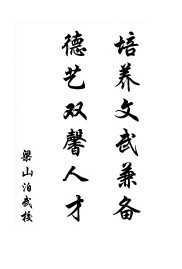 培养文武兼备
德艺双馨人才
梁山泊武校